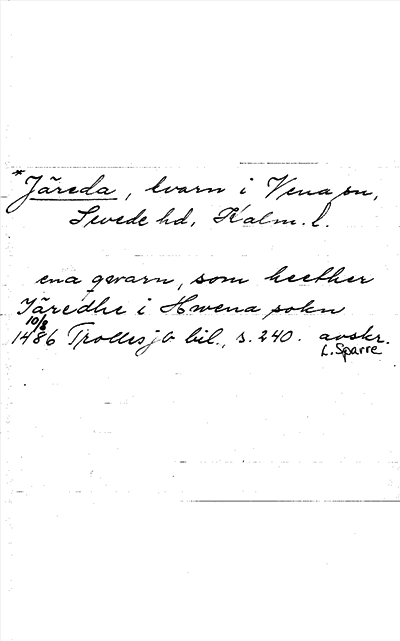 *Järeda, kvarn i Vena sn,
Sevede hd, Kalm. l.
ena qwarn, som heether
Järedhe i Hwena sokn
10/8
1486 Trollesjb bil., s. 240. avskr.
L. Sparre